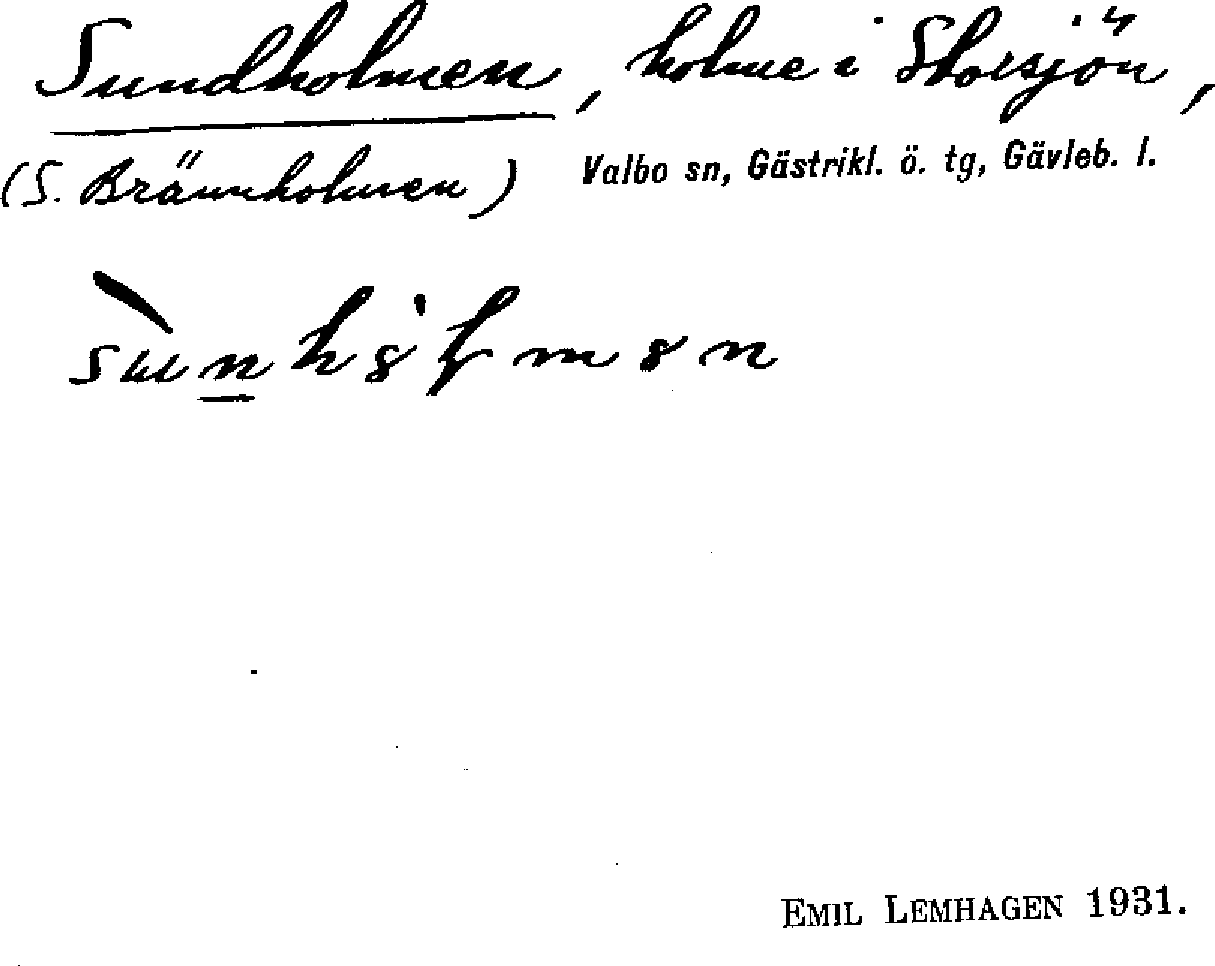 Sundholmen, holme i Storsjön,
(S. Brännholmen) Valbo sn, Gästrikl. ö. tg, Gävleb. l.
EMIL LEMHAGEN 1931.